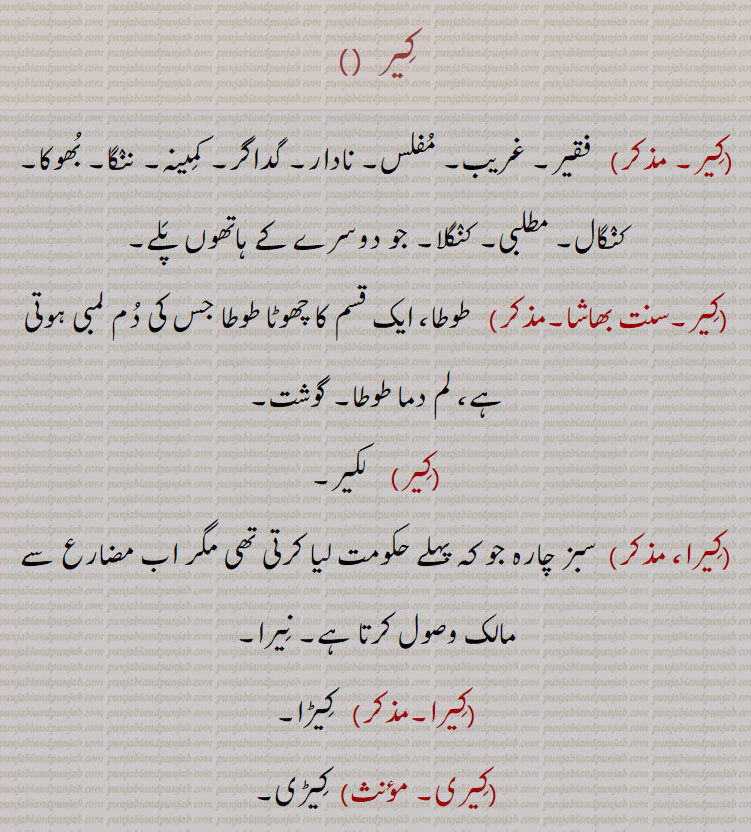 کِیر ()
(کِیر۔ مذکر) فقیر۔ غریب۔ مُفلس۔ نادار۔ گداگر۔ کمِینہ۔ ننگا۔ بُھوکا۔
کنگال۔ مطلبی۔ کنگلا۔ جو دوسرے کے ہاتھوں پَلے۔
(کِیر۔سنت بھاشا۔مذکر) طوطا، ایک قسم کا چھوٹا طوطا جس کی دُم لمبی ہوتی
ہے، لم دما طوطا۔ گوشت۔
(کِیر) لکیر۔
(کِیرا، مذکر) سبز چارہ جو کہ پہلے حکومت لیا کرتی تھی مگر اب مضارع سے
مالک وصول کرتا ہے۔ نِیرا۔
(کِیرا۔مذکر) کِیڑا۔
(کِیری۔ مؤنث) کِیڑی۔